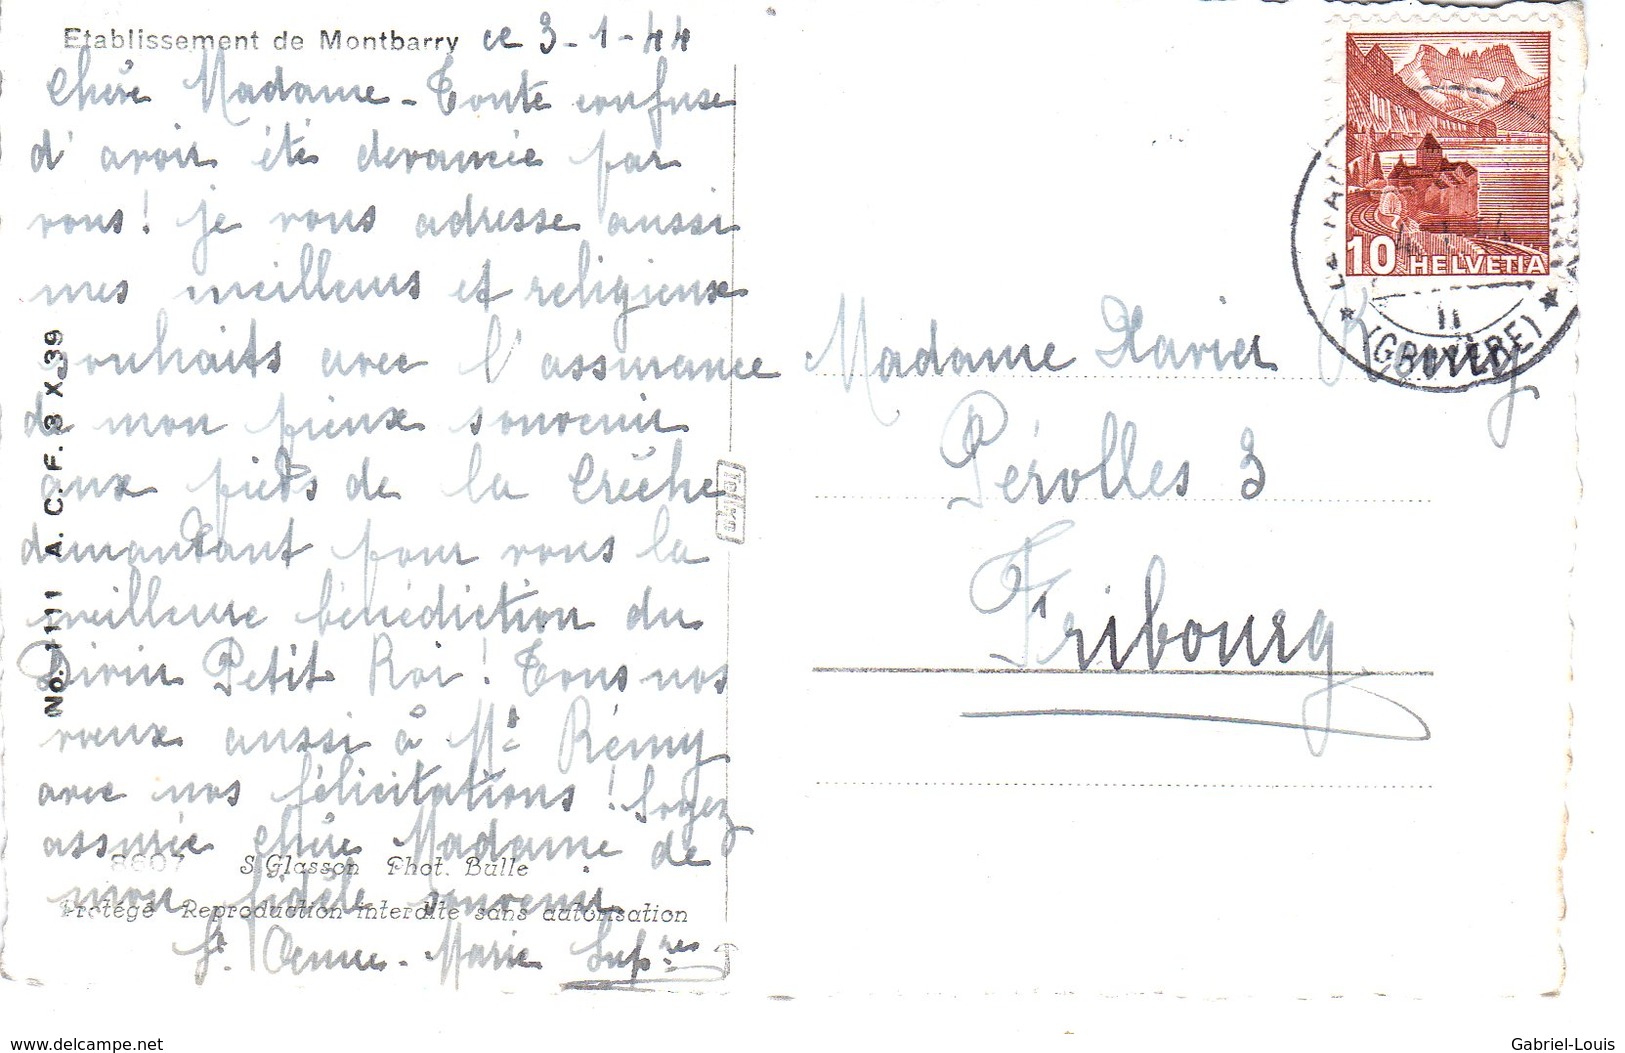 Etablissement de Montbarry ce 3-1-44
Chère Madame - Toute confuse
d'avoir été devancée par
vous! je vous adresse aussi
mes meilleurs et religieux
souhaits avec l'assurance
de mon pieux souvenir
aux pieds de la Crèche
demandant pour vous la
meilleure bénédiction du
Divin Petit Roi! Tous nos
vœux aussi à Mr Rémy
avec nos félicitations! Soyez
assurée chère Madame de
mon fidèle souvenir
Sr Marie Supre
8607 S. Glasson Phot. Bulle
Protégé Reproduction interdite sans autorisation
No. 1111 A. C. F. 3 X 39
10 HELVETIA
(GRUYÈRE)
II
Madame Xavier Remy
Pérolles 3
Fribourg
delcampe.net
Gabriel-Louis